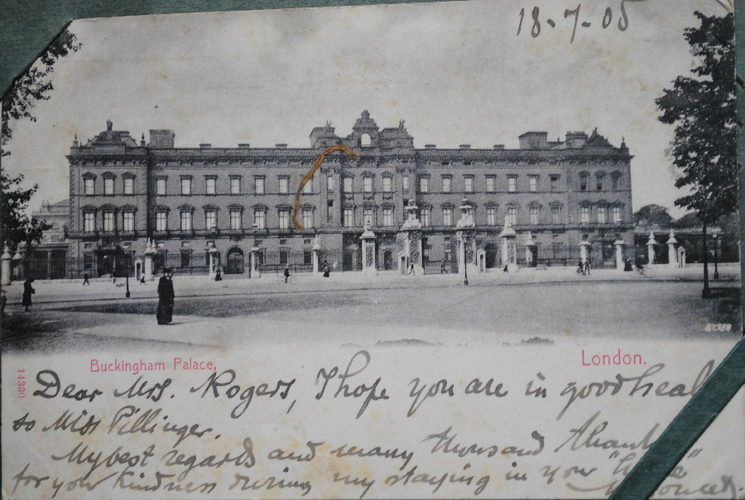 18-7-05
Buckingham Palace,
London.
14330
Dear Mrs. Rogers, I hope you are in good heal
so Miss Pillinger.
My best regards and many thousand thanks
for your kindness during my staying in your